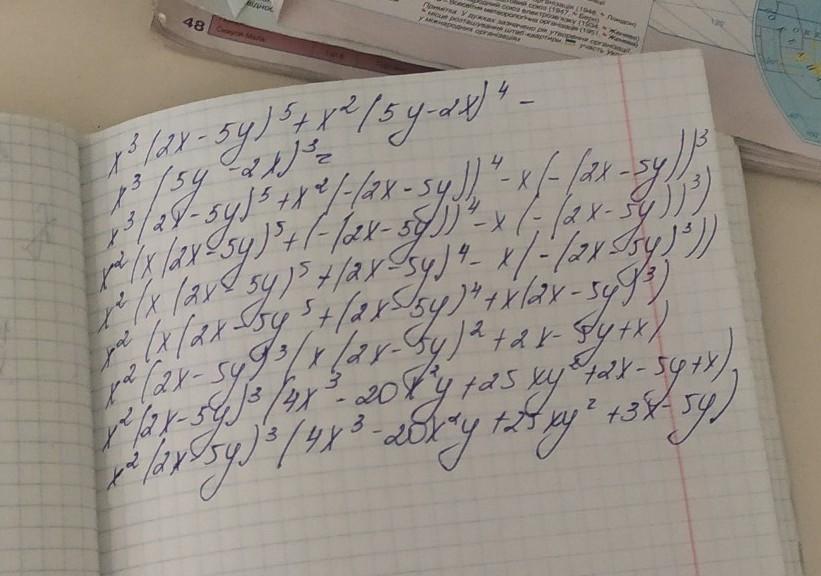 48
x³(2x-5y)⁵+x²(5y-2x)⁴-
x³(5y-2x)³=
x³(2x-5y)⁵+x²(-(2x-5y))⁴-x(-(2x-5y))³
x²(x(2x-5y)⁵+(-(2x-5y))⁴-x(-(2x-5y))³)
x²(x(2x-5y)⁵+(2x-5y)⁴-x(-(2x-5y)³))
x²(x(2x-5y⁵+(2x-5y)⁴+x(2x-5y)³)
x²(2x-5y)³(x(2x-5y)²+2x-5y+x)
x²(2x-5y)³(4x³-20x²y+25xy²+2x-5y+x)
x²(2x-5y)³(4x³-20x²y+25xy²+3x-5y)